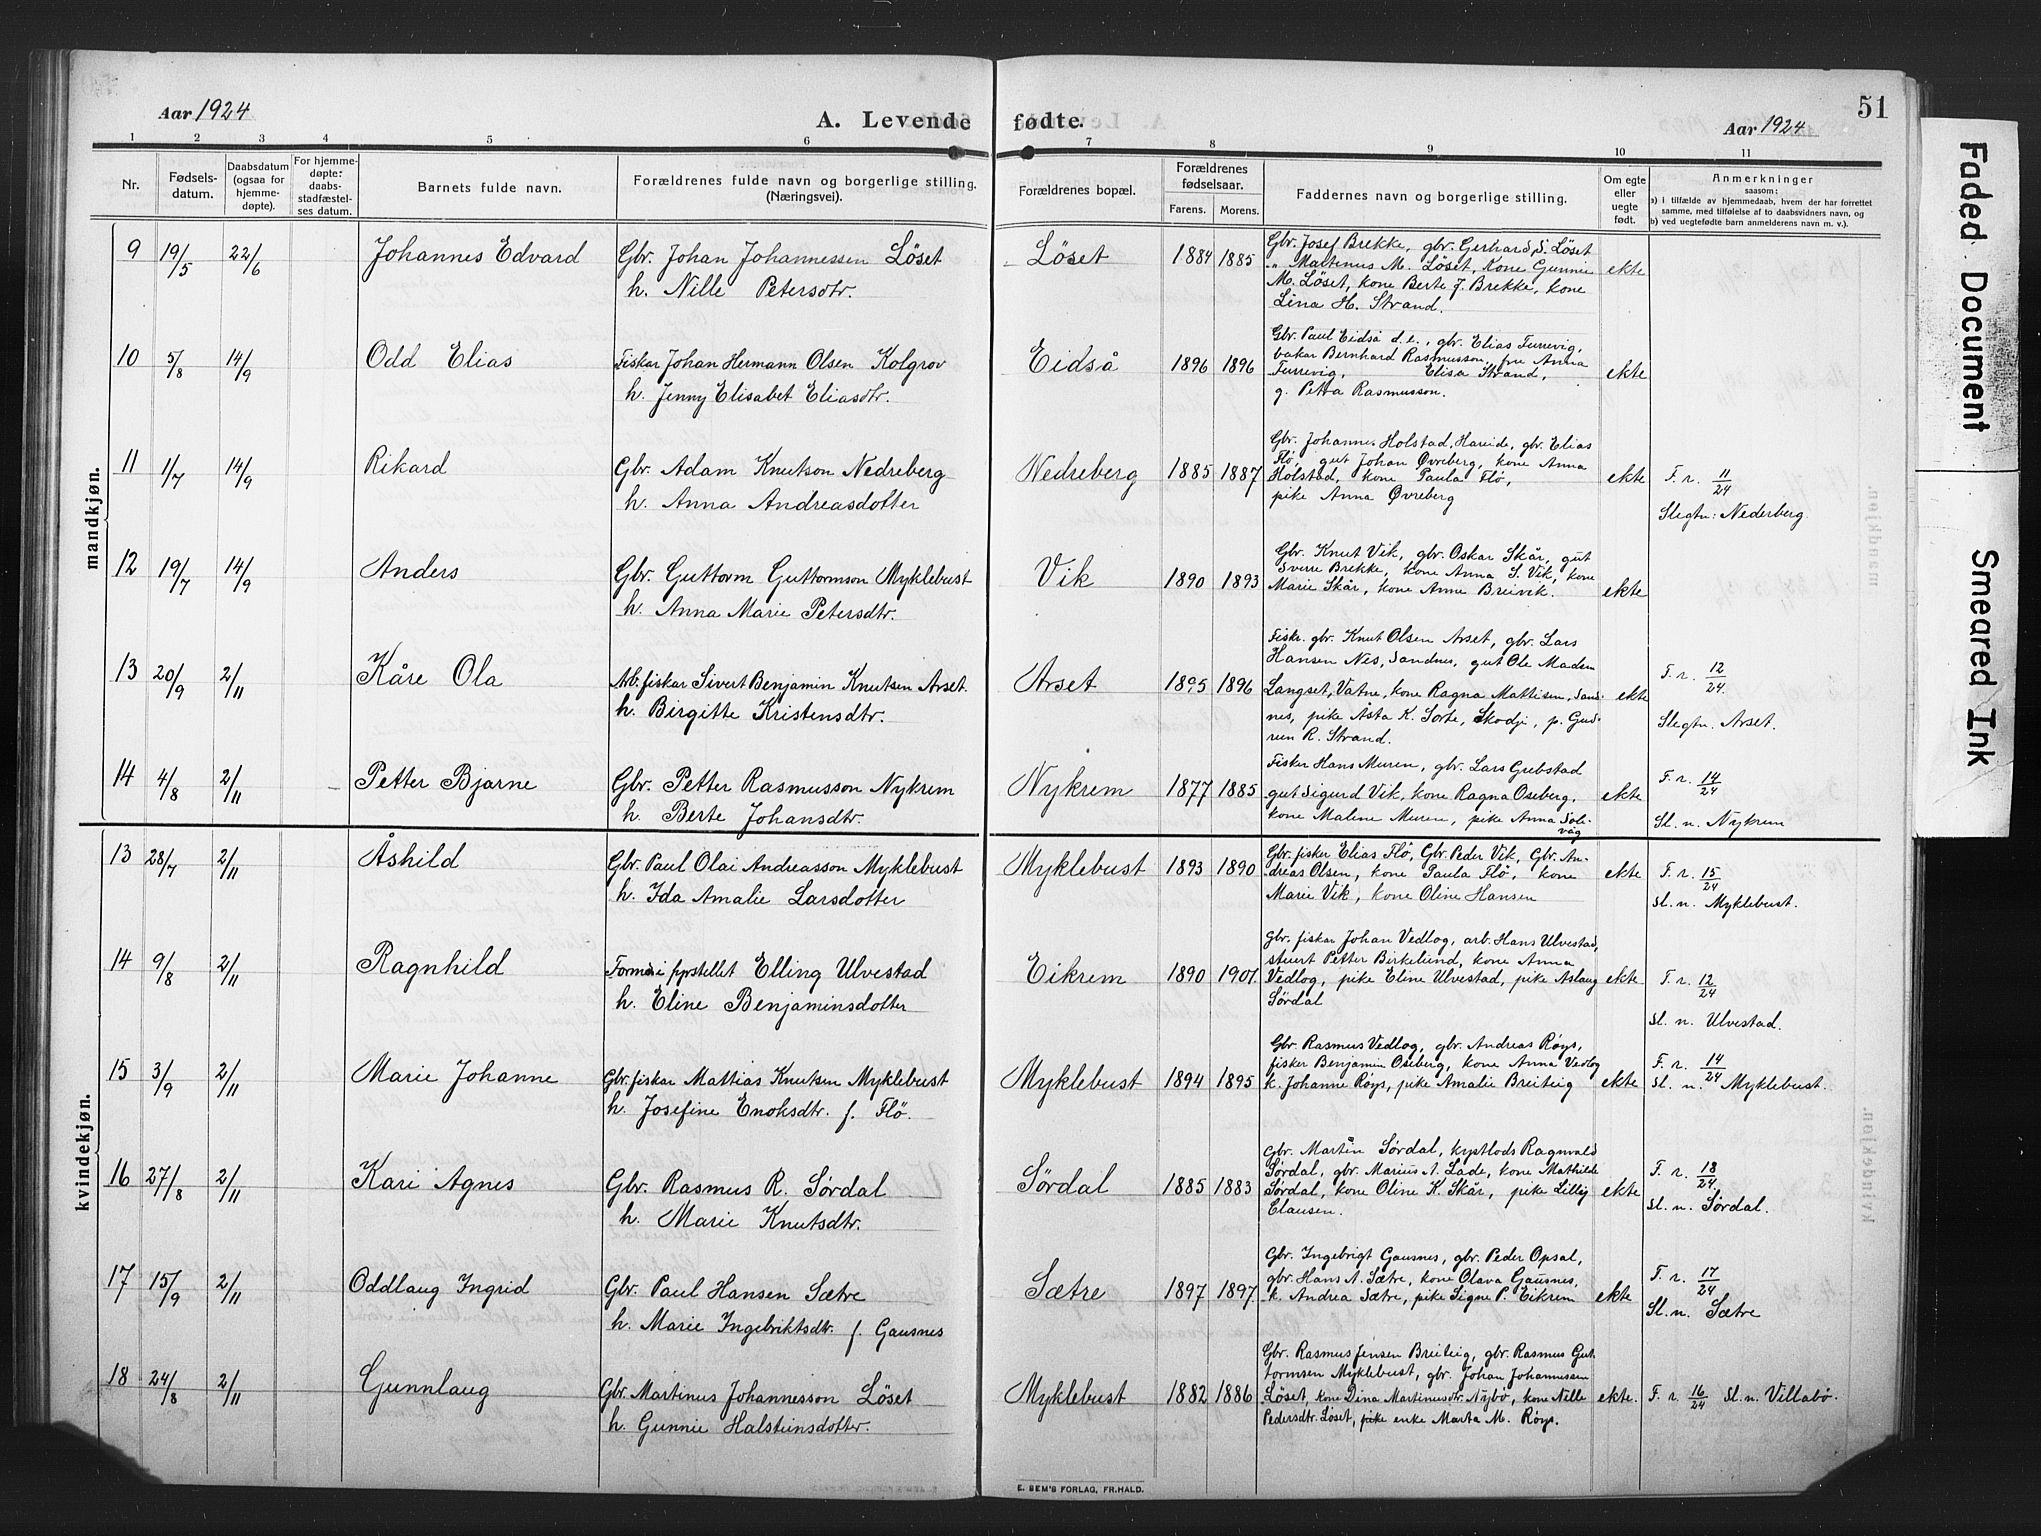 Aar 1924
A. Levende fødte.
Aar 1924
51
1 2 3 4 5 6 7 8 9 10 11
Nr.
Fødsels-
datum.
Daabsdatum
(ogsaa for
hjemme-
døpte).
For hjemme-
døpte:
daabs-
stadfæstel-
ses datum.
Barnets fulde navn.
Forældrenes fulde navn og borgerlige stilling.
(Næringsvei).
Forældrenes bopæl.
Forældrenes
fødselsaar.
Farens. Morens.
Faddernes navn og borgerlige stilling.
Om egte
eller
uegte
født.
Anmerkninger
saasom:
a) i tilfælde av hjemmedaab, hvem der har forrettet
samme, med tilføielse af to daabsvidners navn, og
b) ved uegtefødte barn anmelderens navn m. v.).
mandkjøn.
9 19/5 22/6 Johannes Edvard
Gbr. Johan Johannessen Løset
h. Nille Petersdtr.
Løset 1884 1885
Gbr. Josef Brekke, gbr. Gerhard S. Løset
„ Martinus M. Løset, Kone Gunnie
M. Løset, kone Berte J. Brekke, kone
Lina H. Strand.
ekte
10 5/8 14/9 Odd Elias
Fiskar Johan Hermann Olsen Kolgrov
h. Jenny Elisabet Eliasdtr.
Eidså 1896 1896
Gbr. Paul Eidså d.e., gbr. Elias Furrevig,
bakar Bernhard Rasmusson, fru Anna
Furrevig, Elisa Strand,
g. Petra Rasmusson.
ekte
11 1/7 14/9 Rikard
Gbr. Adam Knutson Nedreberg
h. Anna Andreasdotter
Nedreberg 1885 1887
Gbr. Johannes Holstad, Hareide, gbr. Elias
Flø, gut Johan Øvreberg, kone Anna
Holstad, kone Paula Flø,
pike Anna Øvreberg
ekte
F. r. 11/24
Slegtn: Nederberg.
12 19/7 14/9 Anders
Gbr. Guttorm Guttormson Myklebust
h. Anna Marie Petersdtr.
Vik 1890 1893
Gbr. Knut Vik, gbr. Oskar Skår, gut
Sverre Brekke, kone Anna S. Vik, kone
Marie Skår, kone Anne Breivik.
ekte
13 20/9 2/11 Kåre Ola
Arb. fiskar Sivert Benjamin Knutsen Arset.
h. Birgitte Kristensdtr.
Arset 1895 1896
Fiskr. gbr. Knut Olsen Arset, gbr. Lars
Hansen Nes, Sandnes, gut Ole Madsen
Langset, Vatne, kone Ragna Mattisen, Sand-
nes, pike Åsta K. Sorte, Skodje, p. Gud-
run R. Strand.
ekte
F. r. 12/24.
Slegtn. Arset.
14 4/8 2/11 Petter Bjarne
Gbr. Petter Rasmusson Nykrem
h. Berte Johansdtr.
Nykrem 1877 1885
Fisker Hans Muren, gbr. Lars Grebstad
gut Sigurd Vik, kone Ragna Oseberg,
kone Malene Muren, pike Anna Sole-
våg
ekte
F. r. 14/24
Sl. n. Nykrem
kvindekjøn.
13 28/7 2/11 Åshild
Gbr. Paul Olai Andreasson Myklebust
h. Ida Amalie Larsdotter
Myklebust 1893 1890
Gbr. fisker Elias Flø, Gbr. Peder Vik, Gbr. An-
dreas Olsen, kone Paula Flø, kone
Marie Vik, kone Oline Hansen
ekte
F. r. 15/24
Sl. n. Myklebust.
14 9/8 2/11 Ragnhild
Elling Ulvestad
h. Eline Benjaminsdotter
Eikrem 1890 1901.
Gbr. fiskar Johan Vedlog, arb. Hans Ulvestad,
stuert Petter Birkelund, kone Anna
Vedlog, pike Eline Ulvestad, pike Aslaug
Sørdal
ekte
F. r. 12/24
Sl. n. Ulvestad.
15 3/9 2/11 Marie Johanne
Gbr. fiskar Mattias Knutsen Myklebust
h. Josefine Enoksdtr. f. Flö.
Myklebust 1894 1895
Gbr. Rasmus Vedlog, gbr. Andreas Røys,
fisker Benjamin Oseberg, kone Anna Vedlog
k. Johanne Røys, pike Amalie Breiteig
ekte
F. r. 14/24
Sl. n. Myklebust.
16 27/8 2/11 Kari Agnes
Gbr. Rasmus R. Sørdal
h. Marie Knutsdtr.
Sørdal 1885 1883
Gbr. Martin Sørdal, kystlods Ragnvald
Sørdal, gbr. Marius A. Lade, kone Mathilde
Sørdal, kone Oline K. Skår, pike Lilly
Clausen.
ekte
F. r. 18/24.
Sl. n. Sørdal.
17 15/9 2/11 Oddlaug Ingrid
Gbr. Paul Hansen Sætre
h. Marie Ingebriktsdtr. f. Gausnes
Sætre 1897 1897
Gbr. Ingebrigt Gausnes, gbr. Peder Opsal,
gbr. Hans A. Sætre, kone Olava Gausnes,
k. Andrea Sætre, pike Signe P. Eikrem
ekte
F. r. 17/24
Sl. n. Sætre
18 24/8 2/11 Gunnlaug
Gbr. Martinus Johannesson Løset
h. Gunnie Halsteinsdotter.
Myklebust 1882 1886
Gbr. Rasmus Jensen Breiteig, gbr. Rasmus Gut-
tormsen Myklebust, gbr. Johan Johannesen
Løset, kone Dina Martinusdtr. Nybø, kone Nille
Pedersdtr. Løset, pike enke Marta M. Røys.
ekte.
F. r. 16/24 Sl. n. Villabø.
E. SEM'S FORLAG, FR.HALD.
Faded Document
Smeared Ink